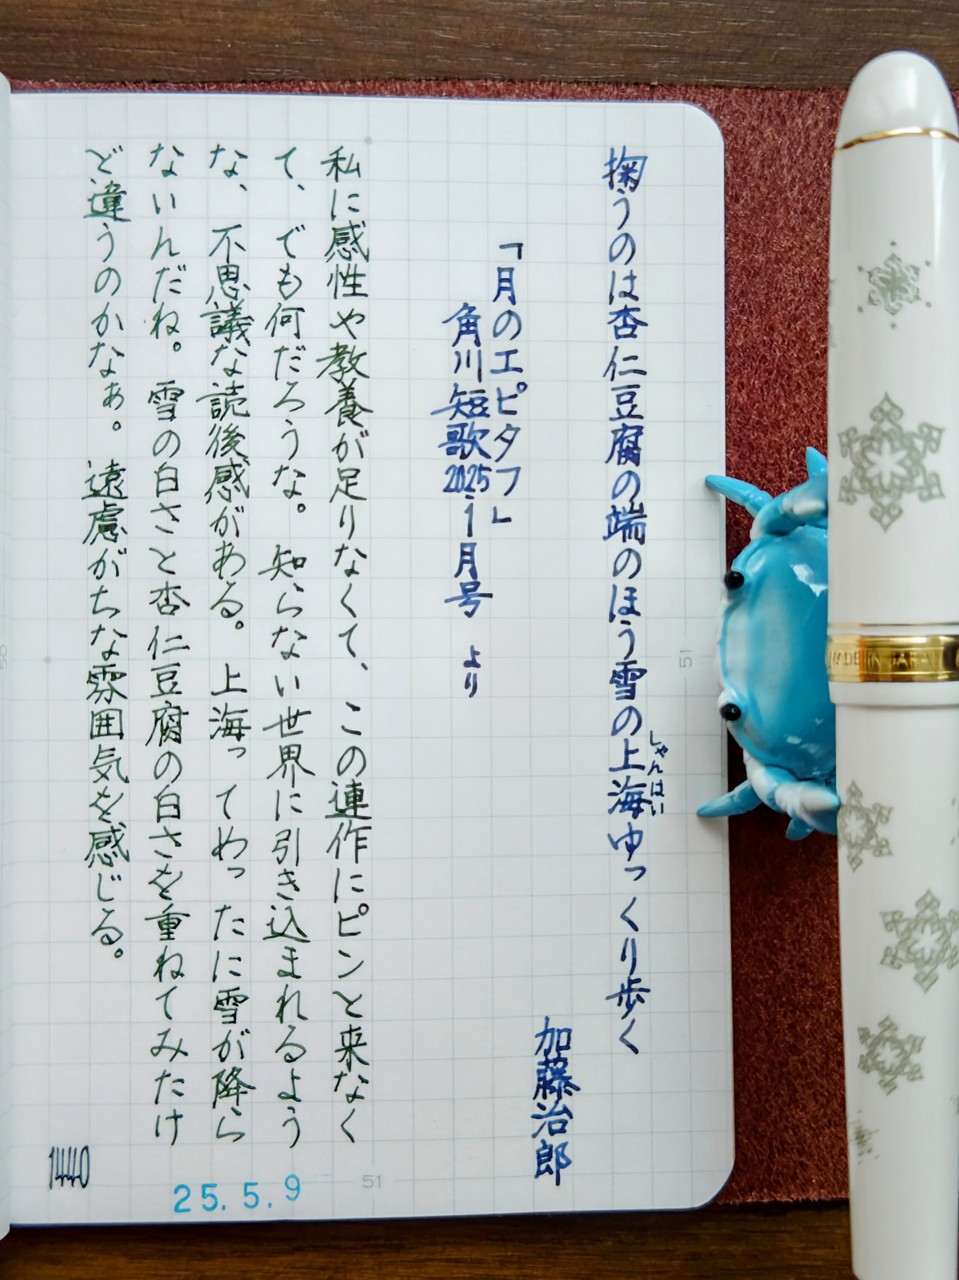 掬うのは杏仁豆腐の端のほう雪の上海ゆっくり歩く
しゃんはい
加藤治郎
「月のエピタフ」
角川短歌2025.1月号 より
私に感性や教養が足りなくて、この連作にピンと来なく
て、でも何だろうな。知らない世界に引き込まれるよう
な、不思議な読後感がある。上海ってめったに雪が降ら
ないんだね。雪の白さと杏仁豆腐の白さを重ねてみたけ
ど違うのかなぁ。遠慮がちな雰囲気を感じる。
1440
25.5.9
51
51
MADE IN JAPAN